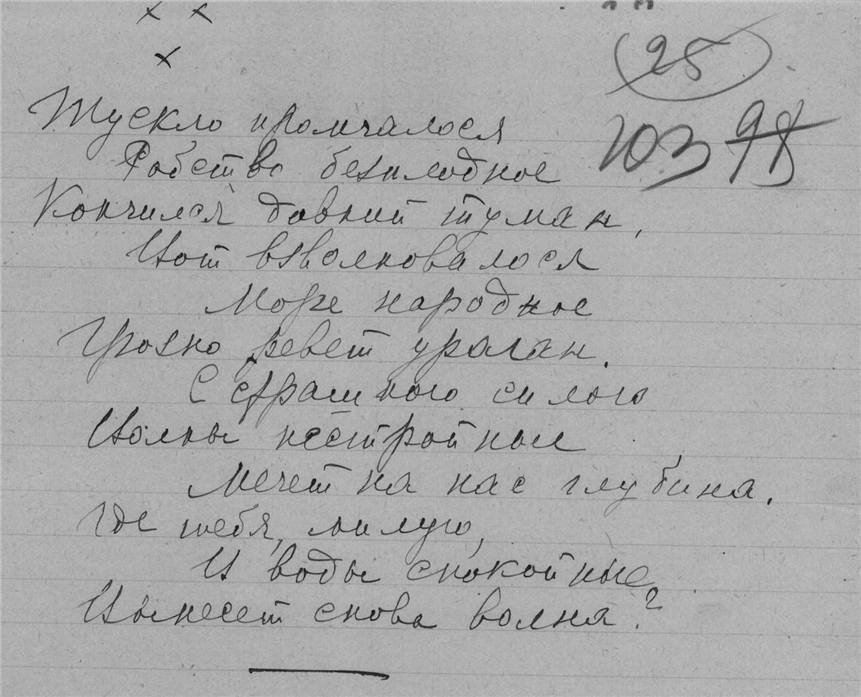 × ×
×
25
103 98
Тускло промчалося
Рабство безплодное
Кончился давний туман,
Вот взволновалося
Море народное
Грозно ревет ураган.
С страшною силою
Волны нестройные
Мечет на нас глубина.
Где тебя, милую,
В воды спокойные
Вынесет снова волна?